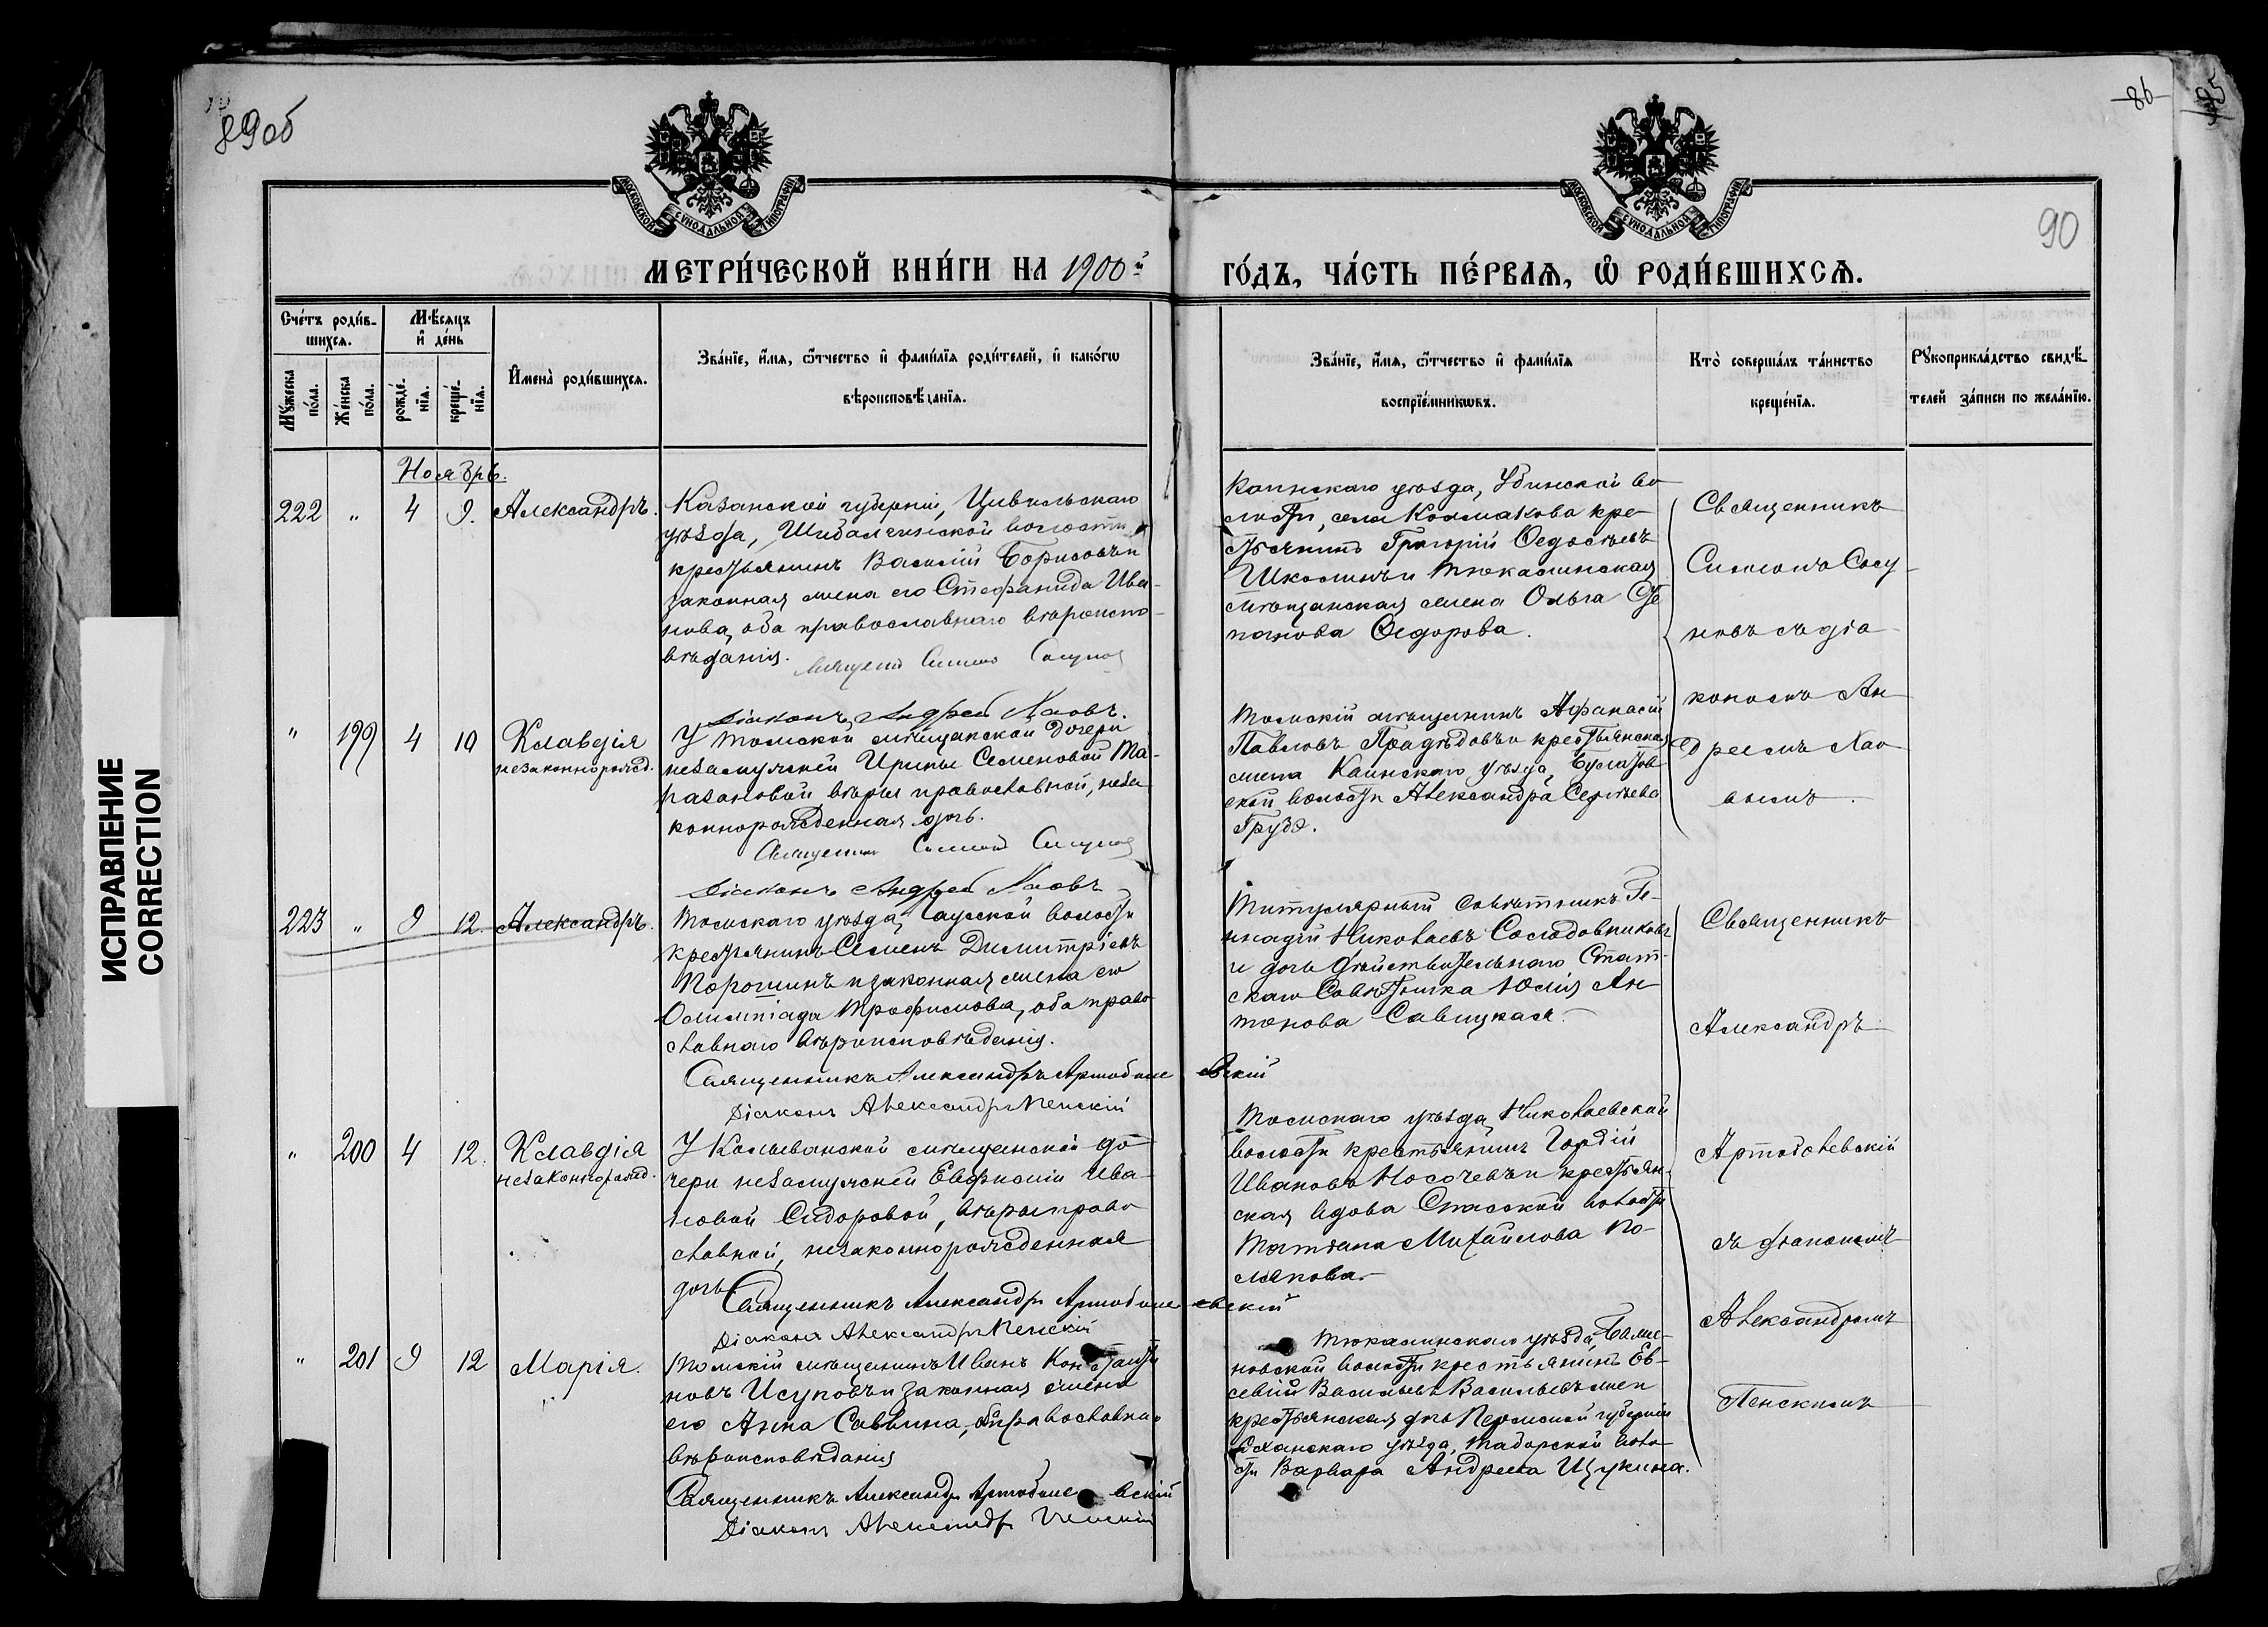 89об
-86-
МОСКОВСКОЙ СѴНОДАЛЬНОЙ ТИПОГРАФІИ
МОСКОВСКОЙ СѴНОДАЛЬНОЙ ТИПОГРАФІИ
90
МЕТРИ́ЧЕСКОЙ КНИ́ГИ НА 1900й
ГО́ДЪ, ЧА́СТЬ ПЕ́РВАЯ, Ѡ РОДИ́ВШИХСЯ.
ИСПРАВЛЕНИЕ
CORRECTION
Сче́тъ роди́в-
шихся.
Мѣ́сяцъ
и де́нь
Му́жеска
по́ла.
Же́нска
по́ла.
рожде́-
нія.
креще́-
нія.
Имена̀ роди́вшихся.
Зва́ніе, и́мя, ѻ҆́тчество и фами́лія роди́телей, и како́гѡ
вѣроисповѣ́данія.
Зва́ніе, и́мя, ѻ҆́тчество и фами́лія
воспріе́мникѡвъ.
Кто̀ соверша́лъ та́инство
креще́нія.
Рукоприкла́дство свидѣ́-
телей за́писи по жела́нію.
Ноябрь.
222 " 4 9. Александръ.
Казанской губерніи, Цивильскаго
уѣзда, Шибалгинской волости
крестьянинъ Василій Борисовъ и
законная жена его Стефанида Ива-
нова, оба православнаго вѣроиспо-
вѣданія.
Діаконъ Андрей Хаовъ.
Каинскаго уѣзда, Убинской во
лости, села Колмакова кре-
стьянинъ Григорій Ѳедосѣевъ
Школинъ и Тюкалинская
мѣщанская жена Ольга Сте
панова Ѳедорова.
Священникъ
Симеонъ Сосу-
новъ съ діа-
кономъ Ан-
дреемъ Хао-
вымъ.
" 199 4 10 Клавдія
незаконнорожд.
У Томской мѣщанской дочери
незамужней Ирины Семеновой Та-
разановой вѣры православной, неза
коннорожденная дочь.
Діаконъ Андрей Хаовъ
Томскій мѣщанинъ Афанасій
Павловъ Прадѣдовъ и крестьянская
жена Каинскаго уѣзда, Булатов-
ской волости Александра Сергѣева
Грудз.
223 " 9 12. Александръ.
Томскаго уѣзда, волости
крестьянинъ Семенъ Димитріевъ
Порошинъ и законная жена его
Олимпіада Трофимова, оба право
славнаго вѣроисповѣданія.
Священникъ Александръ Артоболевскій
Діаконъ Александръ Пенскій
Титулярный Совѣтникъ Ге-
ннадій Николаевъ Солодовниковъ
и дочь дѣйствительнаго Стат-
скаго Совѣтника Юлія Ан
тонова Савицкая.
Священникъ
Александръ
Артоболевскій
съ діакономъ
Александромъ
Пенскимъ
" 200 4 12. Клавдія
незаконнорожд.
У Колыванской мѣщанской до-
чери незамужней Евфиміи Ива-
новой Сидоровой, вѣры право
славной, незаконнорожденная
дочь
Священникъ Александръ Артоболевскій
Діаконъ Александръ Пенскій
Томскаго уѣзда, Николаевской
волости крестьянинъ Гордій
Ивановъ Носочевъ и крестьян-
ская вдова Спасской волости
Татіана Михайлова По-
лякова.
" 201 9 12 Марія.
Томскій мѣщанинъ Иванъ Константи
новъ Исуповъ и законная жена
его Анна Саввина, православнаго
вѣроисповѣданія
Священникъ Александръ Артоболевскій
Діаконъ Александръ Пенскій
Тюкалинскаго уѣзда,
новской волости крестьянинъ Ев-
севій Васильевъ Васильевъ
крестьянская дочь Пермской губерніи
Оханскаго уѣзда, Таборской воло
сти Варвара Андреева Щукина.